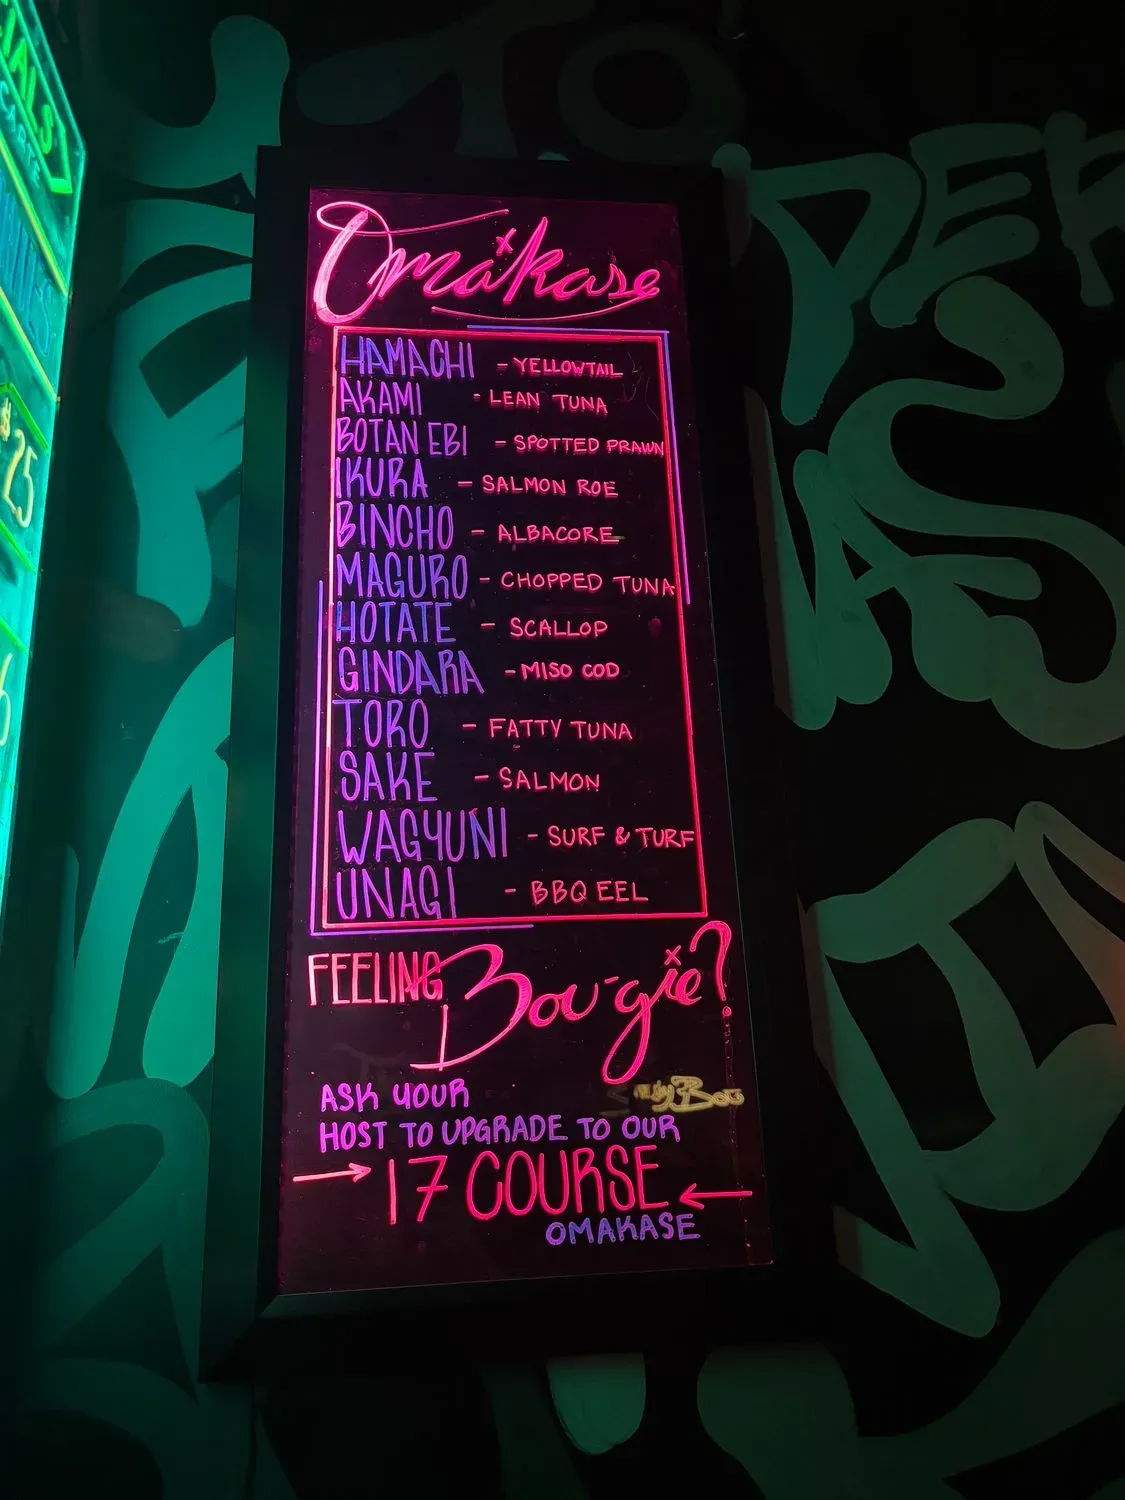 Omakase
HAMACHI - YELLOWTAIL
AKAMI - LEAN TUNA
BOTAN EBI - SPOTTED PRAWN
IKURA - SALMON ROE
BINCHO - ALBACORE
MAGURO - CHOPPED TUNA
HOTATE - SCALLOP
GINDARA - MISO COD
TORO - FATTY TUNA
SAKE - SALMON
WAGYUNI - SURF & TURF
UNAGI - BBQ EEL
FEELING Bougie?
ASK YOUR
HOST TO UPGRADE TO OUR
→ 17 COURSE ←
OMAKASE
$25